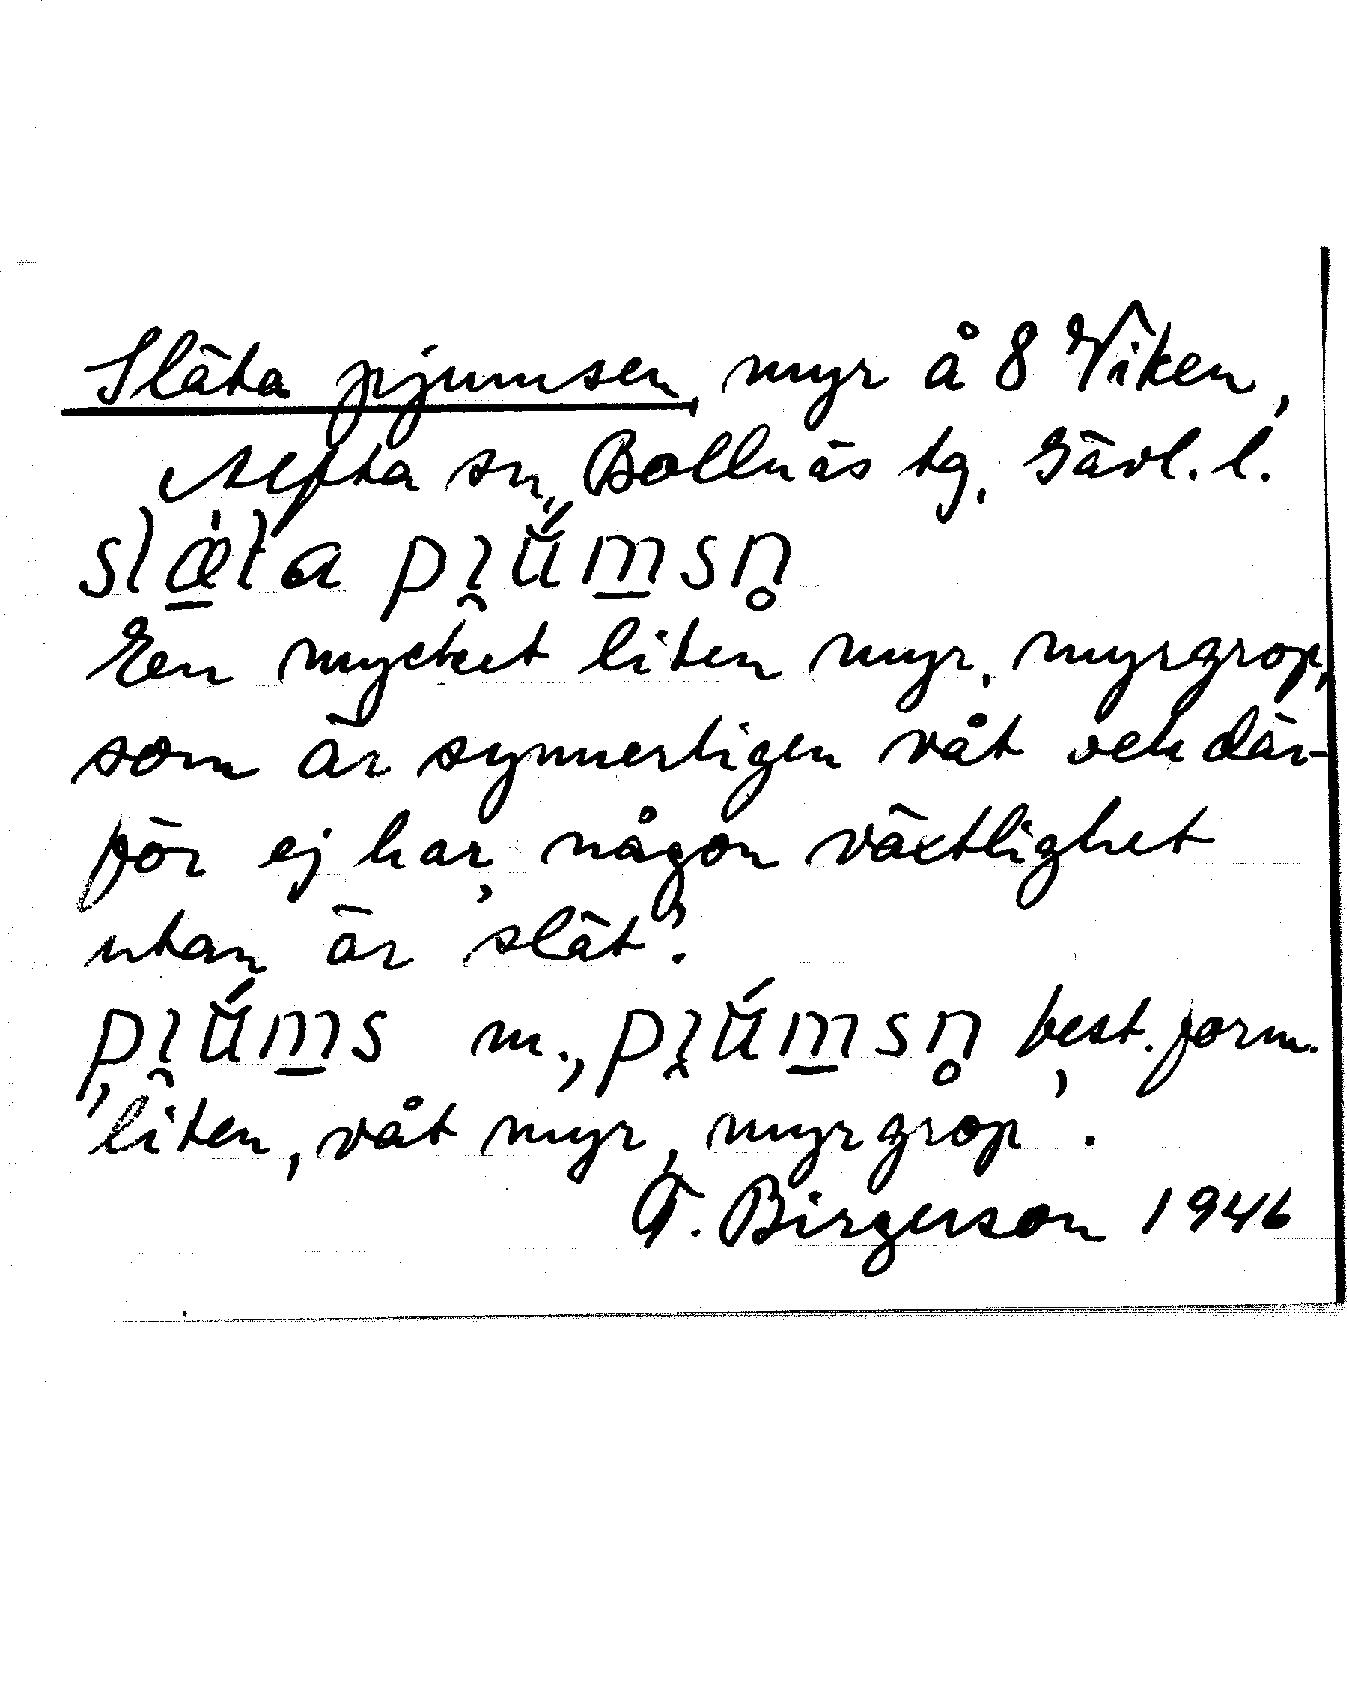 Släta pjumsen, myr å 8 Viken,
Alfta sn, Bollnäs tg, Gävl. l.
slǽta pi̯ŭ́m̱sn̥
En mycket liten myr, myrgrop,
som är synnerligen våt och där-
för ej har någon växtlighet
utan är 'slät'.
pi̯ŭ́m̱s m., pi̯ŭ́m̱sn̥ best. form.
'liten, våt myr, myrgrop'.
T. Birgerson 1946